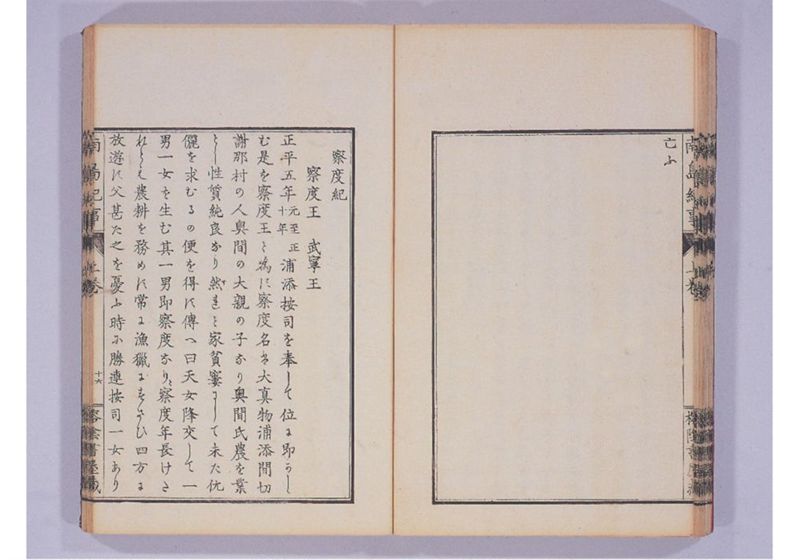 南島紀事 上巻
亡ふ
察度紀
察度王 武寧王
正平五年元至正十年浦添按司を奉して位に即かし
む是を察度王と為す察度名は大真物浦添間切
謝那村の人奥間の大親の子なり奥間氏農を業
とし性質純良なり然れとも家貧窶にして未た伉
儷を求むるの便を得す傳へ曰天女降交して一
男一女を生む其一男即察度なり察度年長けた
れとも農耕を務めす常に漁獵にすさひ四方に
放遊す父甚た之を憂ふ時に勝連按司一女あり
南島紀事 上巻 十六